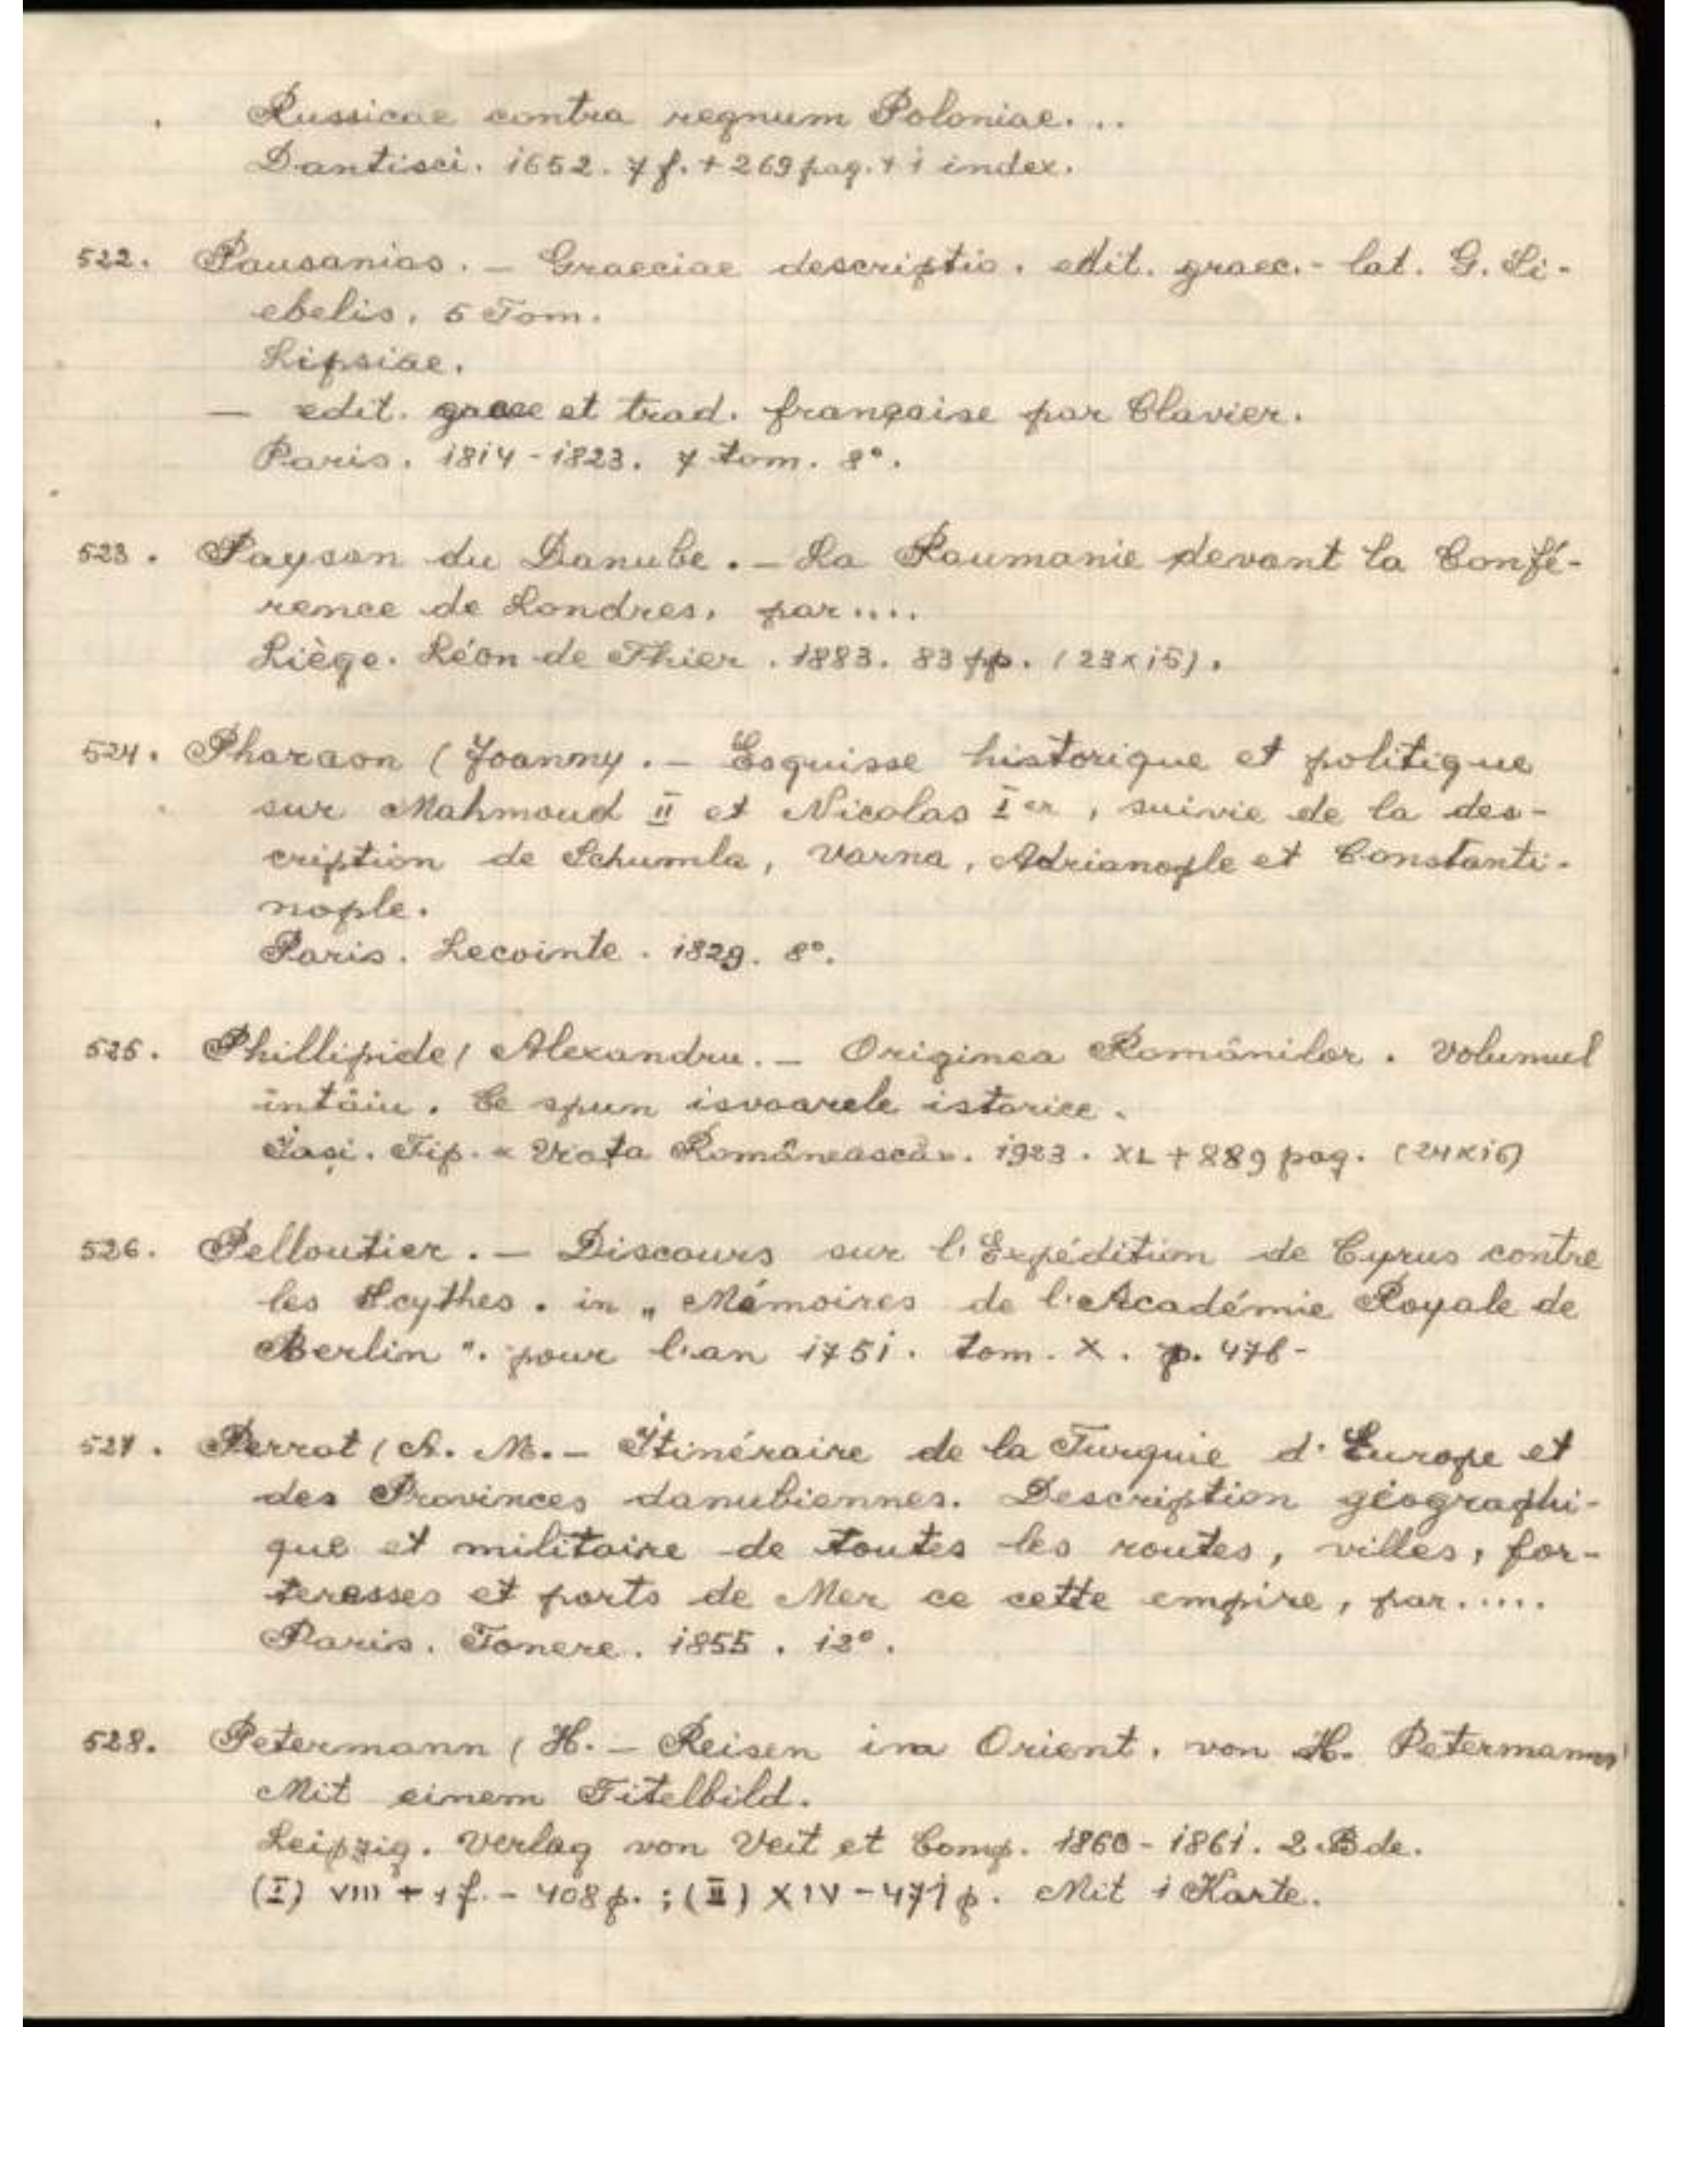 Russicae contra regnum Poloniae....
Dantisci. 1652. 7 f. + 269 pag. + 1 index.
522. Pausanias. - Graeciae descriptio. edit. graec.- lat. G. Si-
ebelis. 5 Tom.
Lipsiae.
— edit. graece et trad. française par Clavier.
Paris. 1814-1823. 7 tom. 8°.
523. Paysan du Danube. - La Roumanie devant la Confé-
rence de Londres. par....
Liège. Léon de Thier. 1883. 83 pp. (23x15).
524. Pharaon (Joanny. - Esquisse historique et politique
sur Mahmoud II et Nicolas Ier, suivie de la des-
cription de Schumla, Varna, Adrianople et Constanti-
nople.
Paris. Lecointe. 1829. 8°.
525. Phillipide (Alexandru. - Originea Românilor. Volumul
întâiu. Ce spun isvoarele istorice.
Iaşi. Tip. « Viaţa Românească». 1923. XL + 889 pag. (24x16)
526. Pelloutier. - Discours sur l'Expédition de Cyrus contre
les Scythes. in „ Mémoires de l'Académie Royale de
Berlin ". pour l'an 1751. tom. X. p. 476-
527. Perrot (A. M. - Itinéraire de la Turquie d'Europe et
des Provinces danubiennes. Description géographi-
que et militaire de toutes les routes, villes, for-
teresses et ports de Mer ce cette empire, par.....
Paris. Tonere. 1855. 12°.
528. Petermann (H. - Reisen im Orient. von H. Petermann
Mit einem Titelbild.
Leipzig. Verlag von Veit et Comp. 1860-1861. 2 Bde.
(I) VIII + 1 f. - 408 p. ; (II) XIV - 471 p. Mit 1 Karte.